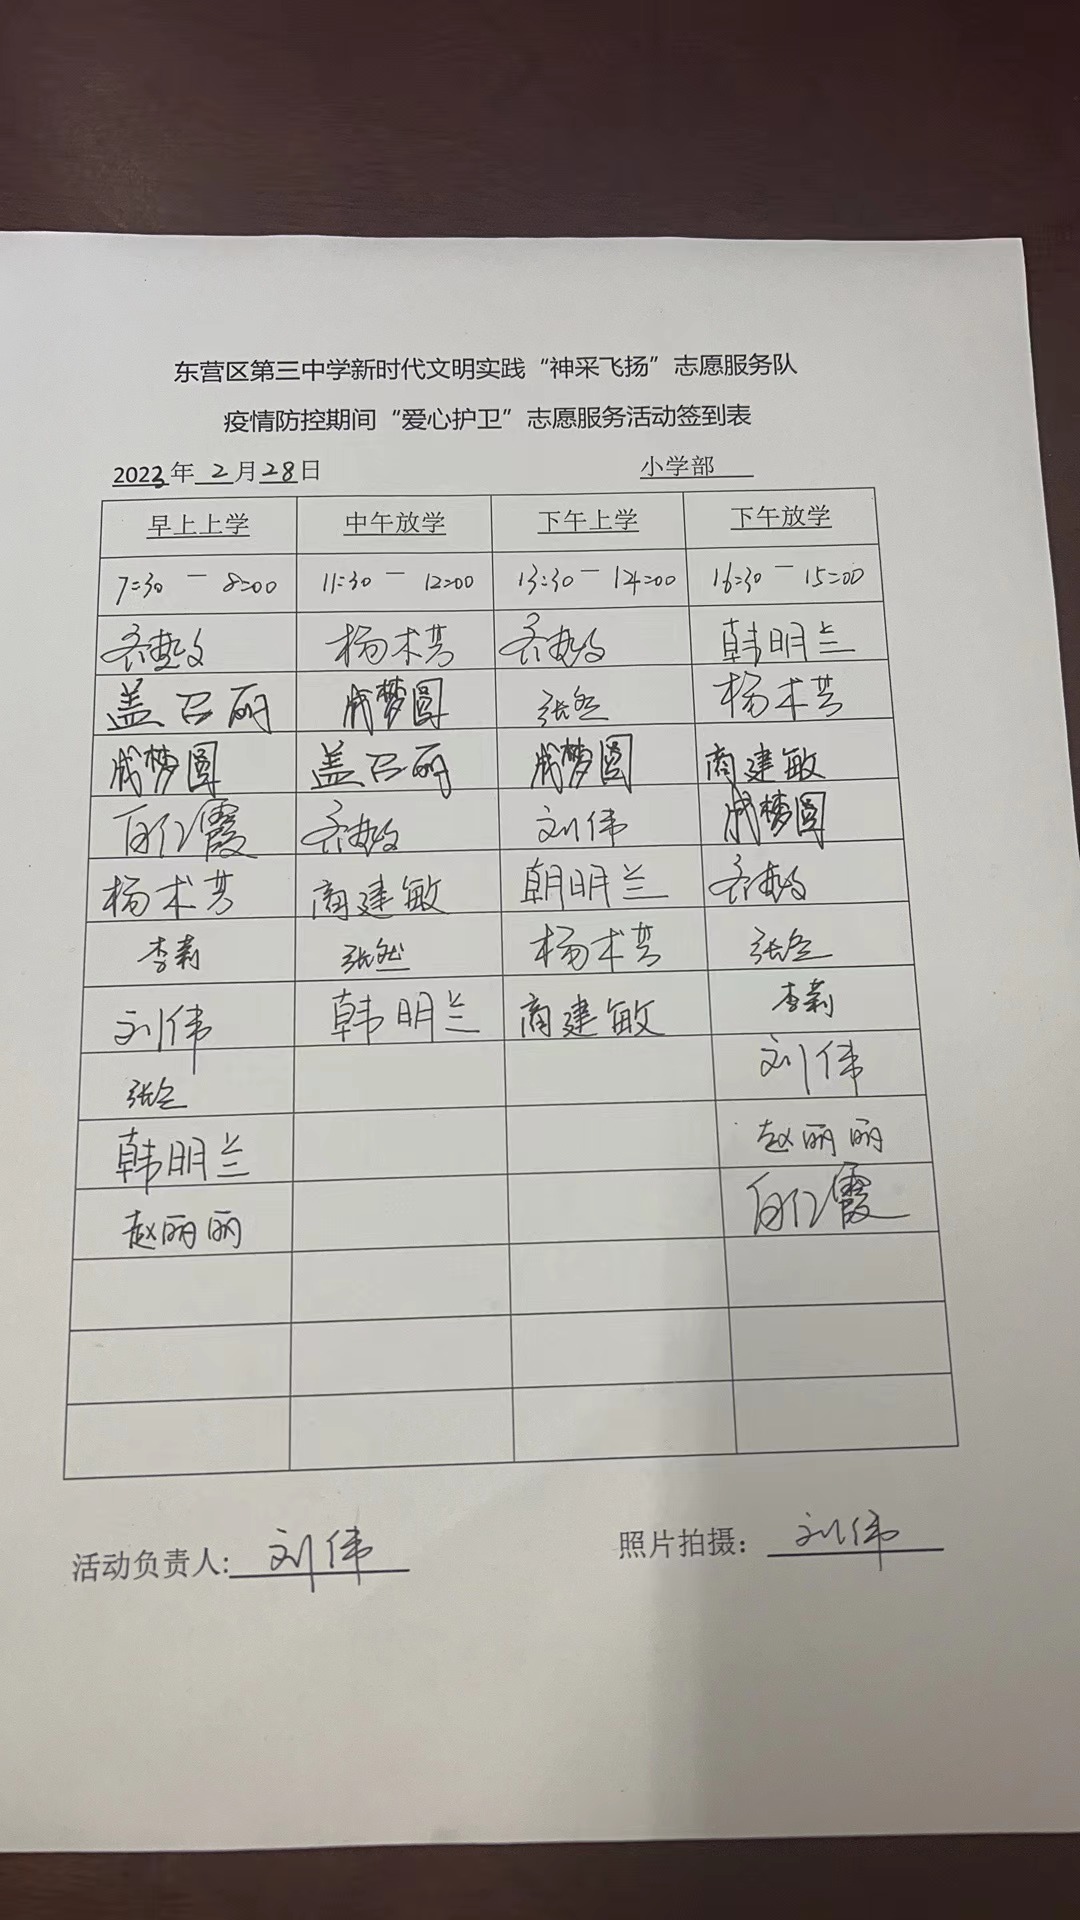 东营区第三中学新时代文明实践“神采飞扬”志愿服务队
疫情防控期间“爱心护卫”志愿服务活动签到表
2023年 2月28日 小学部
早上上学 中午放学 下午上学 下午放学
7:30 — 8:00 11:30 — 12:00 13:30 — 14:00 16:30 — 15:00
杨术芳 韩明兰
盖召丽 成梦圆 杨术芳
成梦圆 盖召丽 成梦圆 商建敏
白仁霞 刘伟 成梦圆
杨术芳 商建敏 朝明兰
李莉 张然 杨术芳
刘伟 韩明兰 商建敏 李莉
刘伟
韩明兰 赵丽丽
赵丽丽 白仁霞
活动负责人:刘伟 照片拍摄：刘伟